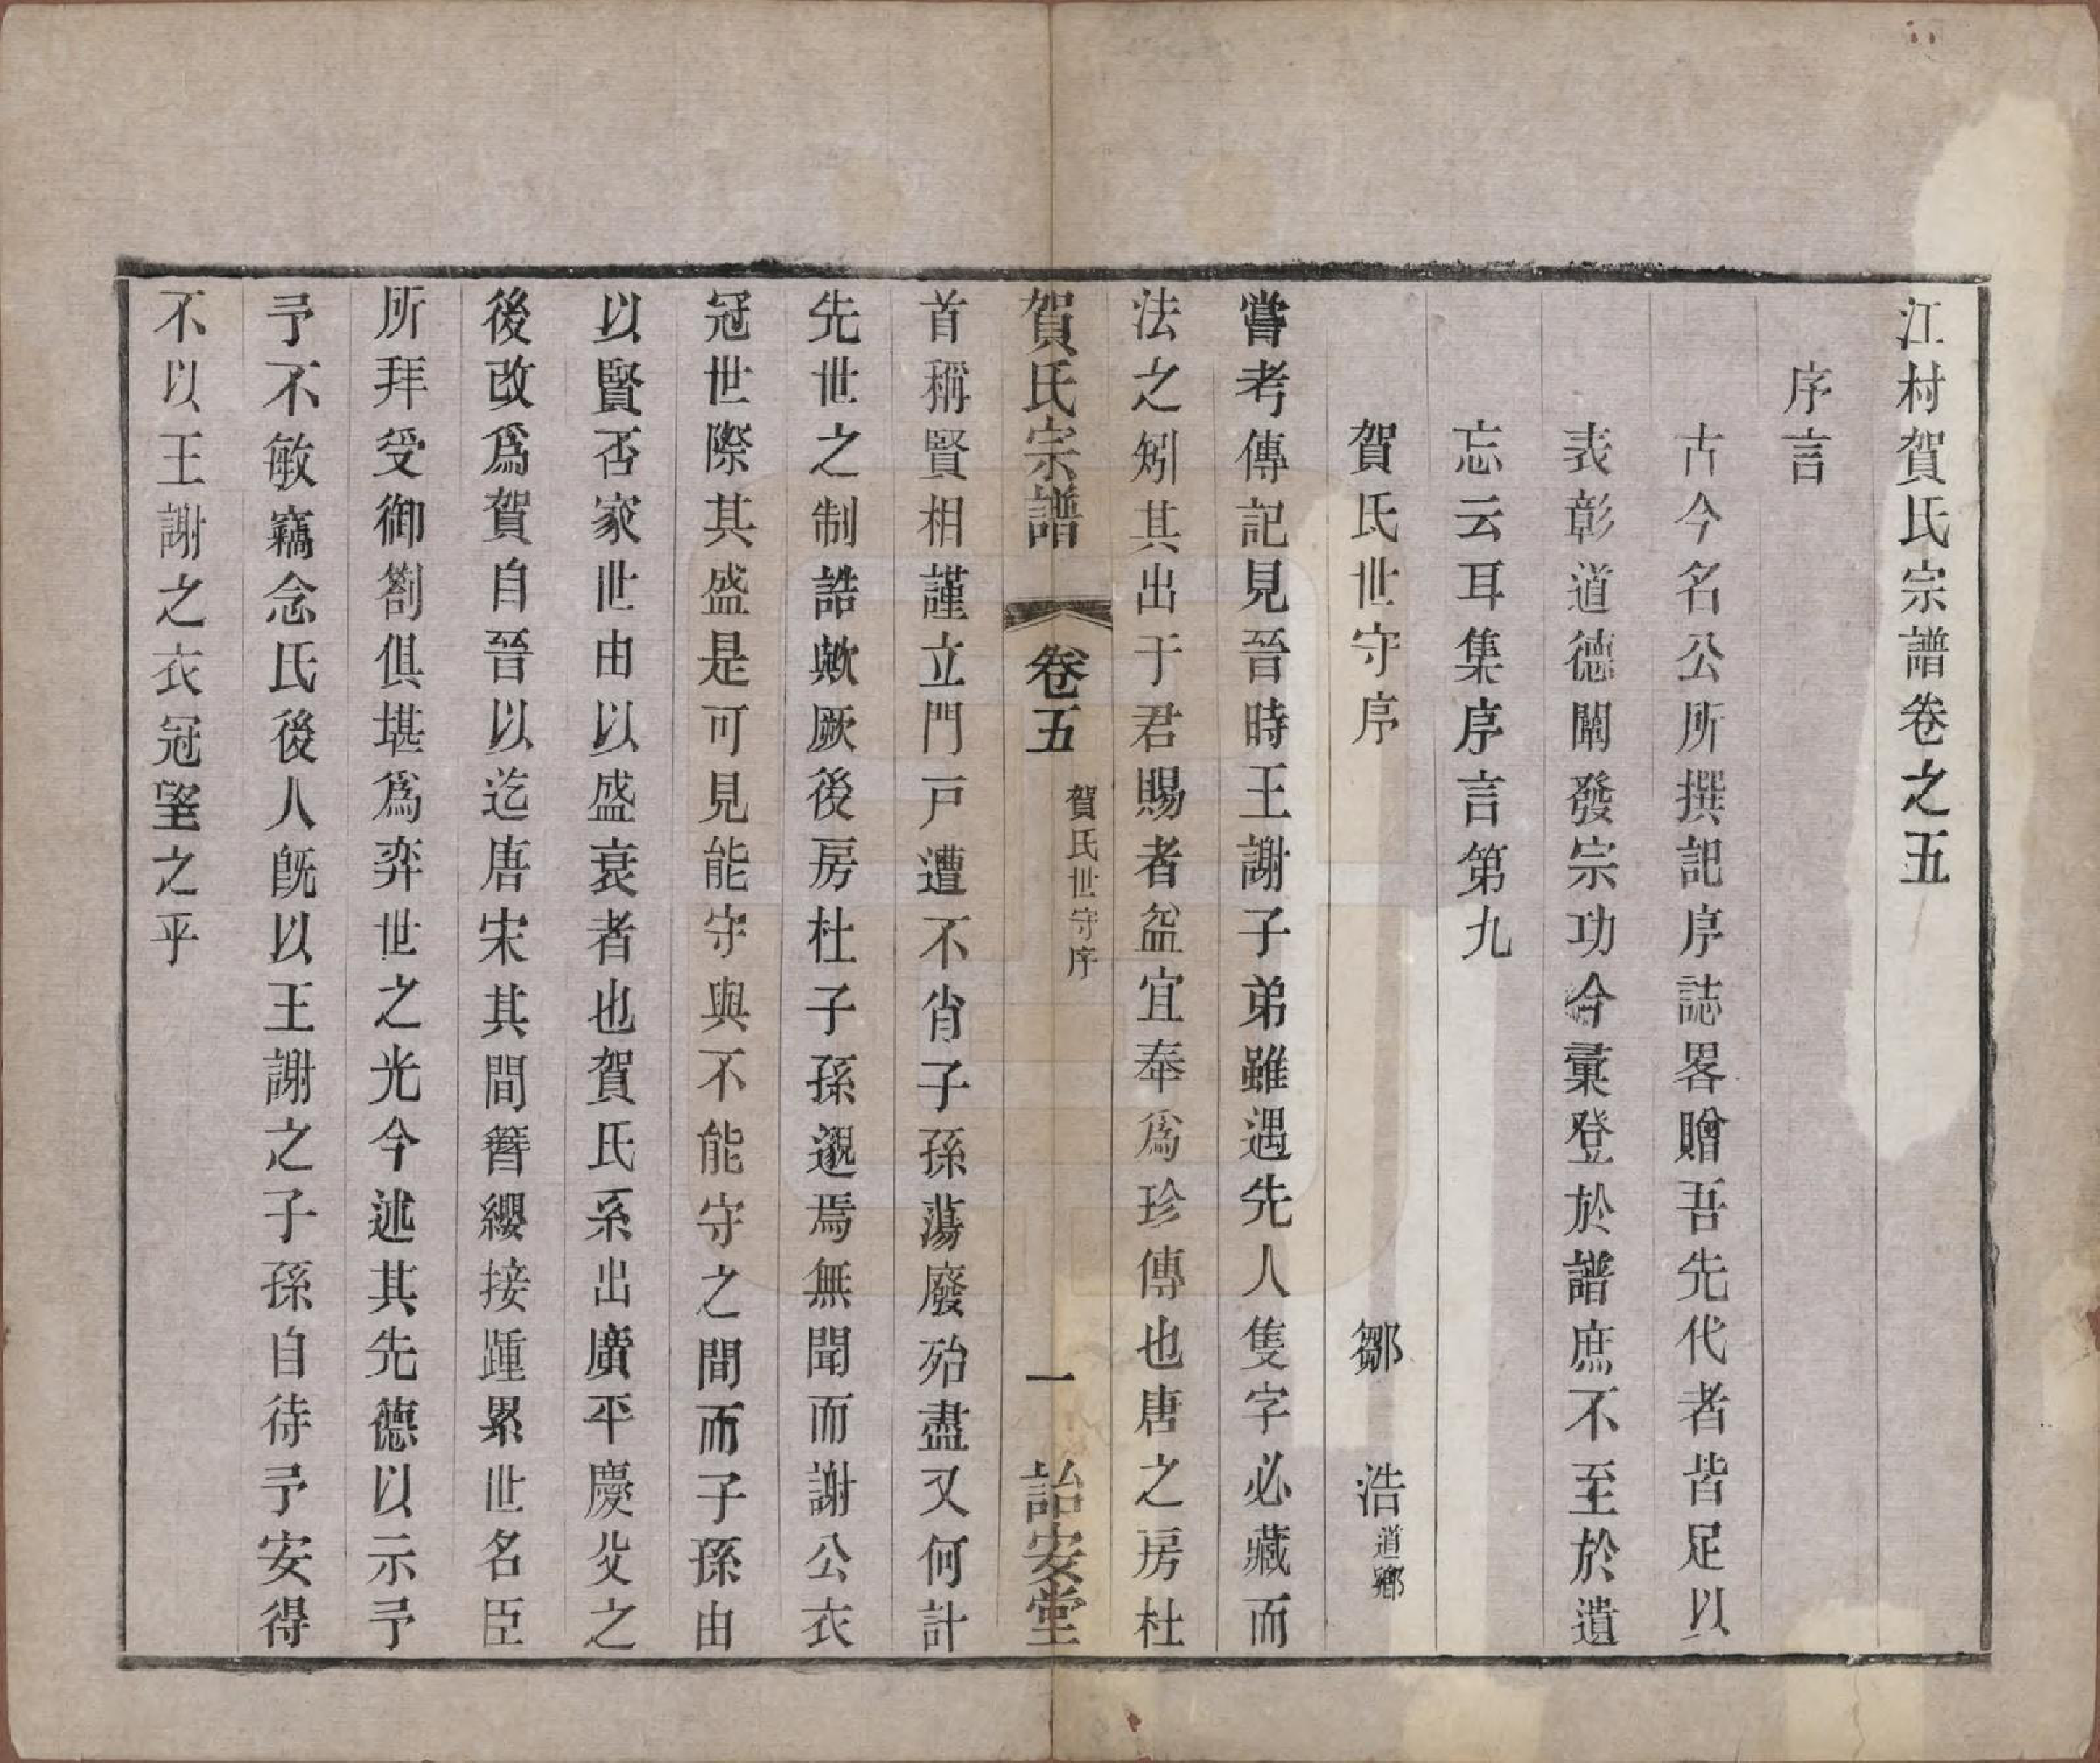 江村賀氏宗譜卷之五
序言
古今名公所撰記序誌畧贈吾先代者皆足以
表彰道德闡發宗功今彙登於譜庶不至於遺
忘云耳集序言第九
賀氏世守序 鄒浩道鄉
嘗考傳記見晉時王謝子弟雖遇先人隻字必藏而
法之矧其出于君賜者益宜奉爲珍傳也唐之房杜
賀氏宗譜 卷五 賀氏世守序 一 詒安堂
首稱賢相謹立門戸遭不肖子孫蕩廢殆盡又何計
先世之制誥歟厥後房杜子孫邈焉無聞而謝公衣
冠世際其盛是可見能守與不能守之間而子孫由
以賢否家世由以盛衰者也賀氏系出廣平慶父之
後改爲賀自晉以迄唐宋其間簪纓接踵累世名臣
所拜受御劄俱堪爲弈世之光今述其先德以示予
予不敏竊念氏後人旣以王謝之子孫自待予安得
不以王謝之衣冠望之乎